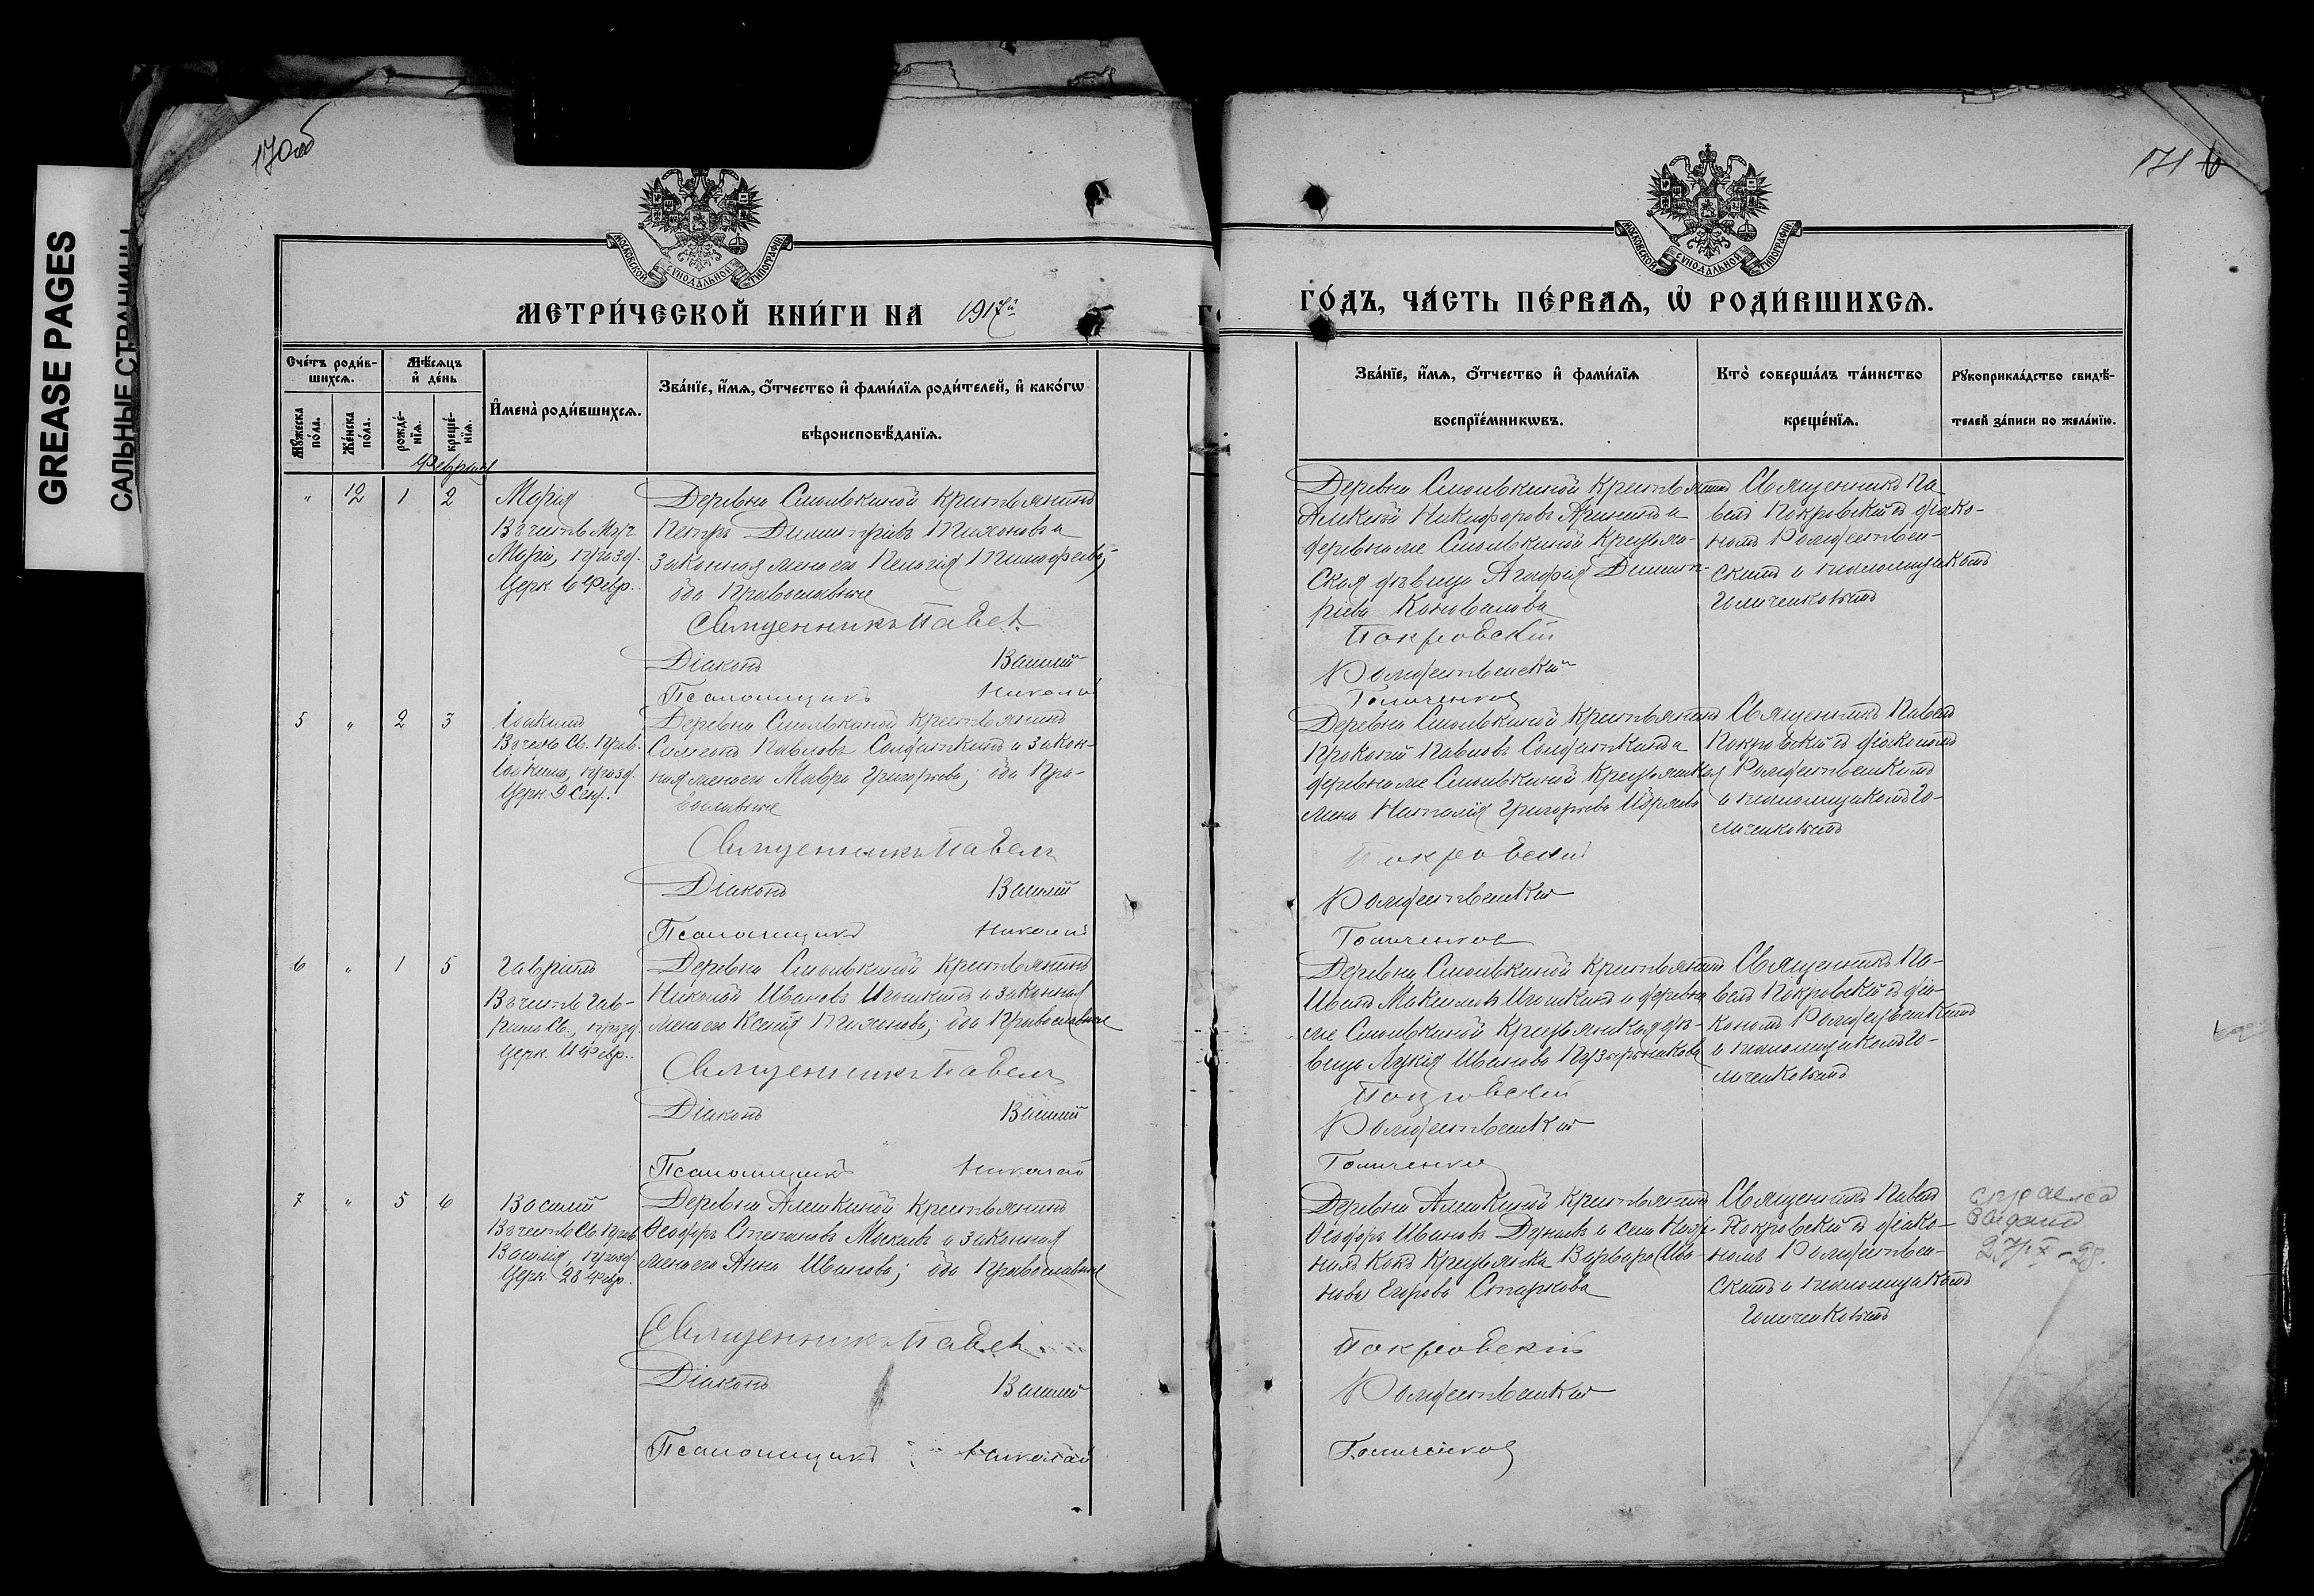 GREASE PAGES
САЛЬНЫЕ СТРАНИЦЫ
170об
171
МОСКОВСКОЙ СѴНОДАЛЬНОЙ ТИПОГРАФІИ
МЕТРИ́ЧЕСКОЙ КНИ́ГИ НА 1917й
Сче́тъ роди́в-
шихсѧ.
Мѣ́сѧцъ
и҆ де́нь
И҆мена̀ роди́вшихсѧ.
Зва́нїе, и҆́мѧ, ѻ҆́тчество и҆ фами́лїѧ роди́телей, и҆ како́гѡ
вѣроисповѣ́данїѧ.
Мꙋ́жеска
по́ла.
Же́нска
по́ла.
рожде́-
нїѧ.
креще́-
нїѧ.
Февраля
" 12 1 2
Марія
Въ честь Муч.
Маріи, празд.
Церк. 6 Февр.
Деревни Смолькиной крестьянинъ
Петръ Димитріевъ Тихоновъ и
законная жена его Пелагія Тимофеева;
оба православные
Священникъ Павелъ
Діаконъ Василій
Псаломщикъ Николай
5 " 2 3
Іоакимъ
Въ честь Св. Прав.
Іоакима, празд.
Церк. 9 Сент.
Деревни Смолькиной крестьянинъ
Павловъ Солдаткинъ и закон-
ная жена его Мавра Григорьева; оба Пра-
вославные
Священникъ Павелъ
Діаконъ Василій
Псаломщикъ Николай
6 " 1 5
Гавріилъ
Въ честь Гав-
ріила Св., празд.
Церк. 11 Февр.
Деревни Смолькиной крестьянинъ
Николай Ивановъ Игошкинъ и законная
жена его Ксенія Тихонова; оба Православные
Священникъ Павелъ
Діаконъ Василій
Псаломщикъ Николай
7 " 5 6
Василій
Въ честь Св. Прав.
Василія, празд.
Церк. 28 Февр.
Деревни Алешкиной крестьянинъ
Ѳеодоръ Степановъ Москаевъ и законная
жена его Анна Иванова; оба Православные
Священникъ Павелъ
Діаконъ Василій
Псаломщикъ Николай
МОСКОВСКОЙ СѴНОДАЛЬНОЙ ТИПОГРАФІИ
ГО́ДЪ, ЧА́СТЬ ПЕ́РВАѦ, Ѡ҆ РОДИ́ВШИХСѦ.
Зва́нїе, и҆́мѧ, ѻ҆́тчество и҆ фами́лїѧ
воспрїе́мникѡвъ.
Кто̀ соверша́лъ та́инство
креще́нїѧ.
Рꙋкоприкла́дство свидѣ́-
телей за́писи по жела́нїю.
Деревни Смолькиной крестьянинъ
Алексѣй Никифоровъ и
деревни же Смолькиной крестьян-
ская дѣвица Агафія Димит-
ріева Коновалова
Покровскій
Рождественскій
Голиченковъ
Священникъ Па-
велъ Покровскій съ діако-
номъ Рождествен-
скимъ и псаломщикомъ
Голиченковымъ
Деревни Смолькиной крестьянинъ
Прокопій Павловъ Солдаткинъ и
деревни же Смолькиной крестьянская
жена Наталія Григорьева
Покровскій
Рождественскій
Голиченковъ
Священникъ Павелъ
Покровскій съ діакономъ
Рождественскимъ
и псаломщикомъ Го-
личенковымъ
Деревни Смолькиной крестьянинъ
Иванъ Игошкинъ и деревни
же Смолькиной крестьянская дѣ-
вица Лукія Иванова Пузырникова
Покровскій
Рождественскій
Голиченковъ
Священникъ Па-
велъ Покровскій съ діа-
кономъ Рождественскимъ
и псаломщикомъ Го-
личенковымъ
Деревни Алешкиной крестьянинъ
Ѳеодоръ Ивановъ Дунаевъ и села
крестьянка Варвара (Ива-
нова) Егорова Старкова
Покровскій
Рождественскій
Голиченковъ
Священникъ Павелъ
Покровскій съ діако-
номъ Рождествен-
скимъ и псаломщикомъ
Голиченковымъ
справка
выдана
27/X-28.